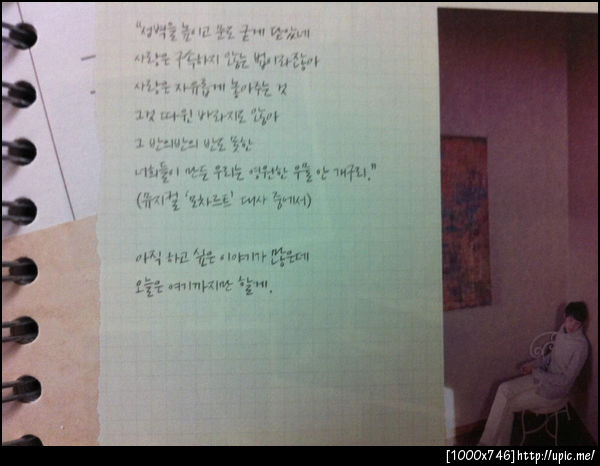 "성벽을 높이고 문도 굳게 닫았네
사랑은 구속하지 않는 법이라잖아
사랑은 자유롭게 놓아주는 것
그것 따윈 바라지도 않아
그 반의반의 반도 못한
너희들이 만든 우리는 영원한 우물 안 개구리."
(뮤지컬 '모차르트' 대사 중에서)
아직 하고 싶은 이야기가 많은데
오늘은 여기까지만 할게.
[1000x746]http://upic.me/